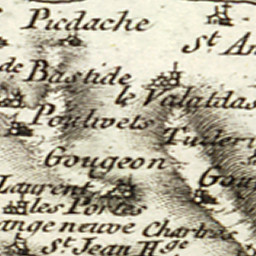 Picdache
St An
de Bastide
le Valatdas
Poulwets
Tuilery
Gougeon
Gou
Laurent
les Portes
ange neuve Chartr
St. Jean Hge